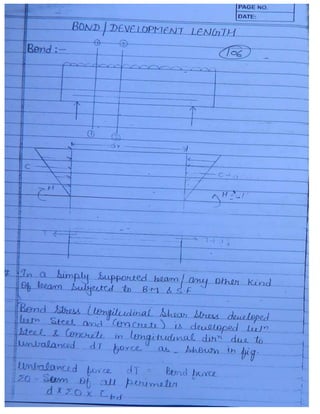 PAGE NO.
DATE:
BOND / DEVELOPMENT LENGTH
Bond :-
106
① ②
① ②
dx
C
M
T
In a Simply Supported beam / any other kind
Of beam Subjected to B·M & S.F
Bond Stress (longitudinal Shear stress developed
betn Steel and Concrete) is developed betn
Steel & Concrete in longitudinal dirn due to
unbalanced dT force as shown in fig.
Unbalanced force dT = Bond force
ΣO - Sum Of all perimeter
d x ΣO x τbd